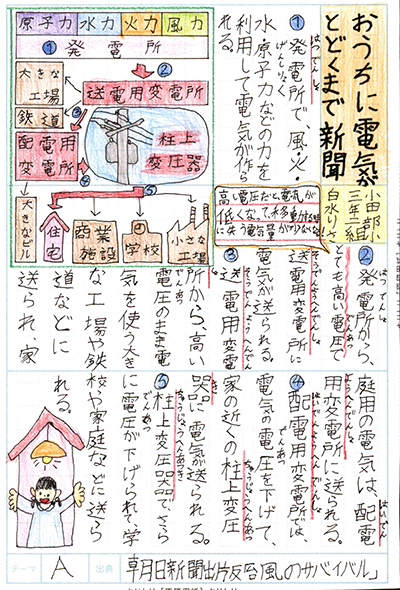 おうちに電気が
とどくまで新聞
小田部小
三年二組
①発電所で、風火・
水・原子力などの力を
利用して電気が作ら
れる。
原子力
水力
火力
風力
①発電所
②
大きな
工場
送電用変電所
鉄道
③
配電用
変電所
④
柱上
変圧器
⑤
大きなビル
住宅
商業
施設
学校
小さな
工場
高い電圧だと、電気が
低くなって、移動する時
に失う電気量が少なくなる
②発電所から、
とても高い電圧で
送電用変電所に
電気が送られる。
③送電用変電
所から、高い
電圧のまま電
気を使う大き
な工場や鉄
道などに
送られ、家
庭用の電気は、配電
用変電所に送られる。
④配電用変電所では、
電気の電圧を下げて、
家の近くの柱上変圧
器に電気が送られる。
⑤柱上変圧器で、さら
に電圧が下げられて、学
校や家庭などに送ら
れる。
テーマ
A
出典
朝日新聞出版「台風のサバイバル」